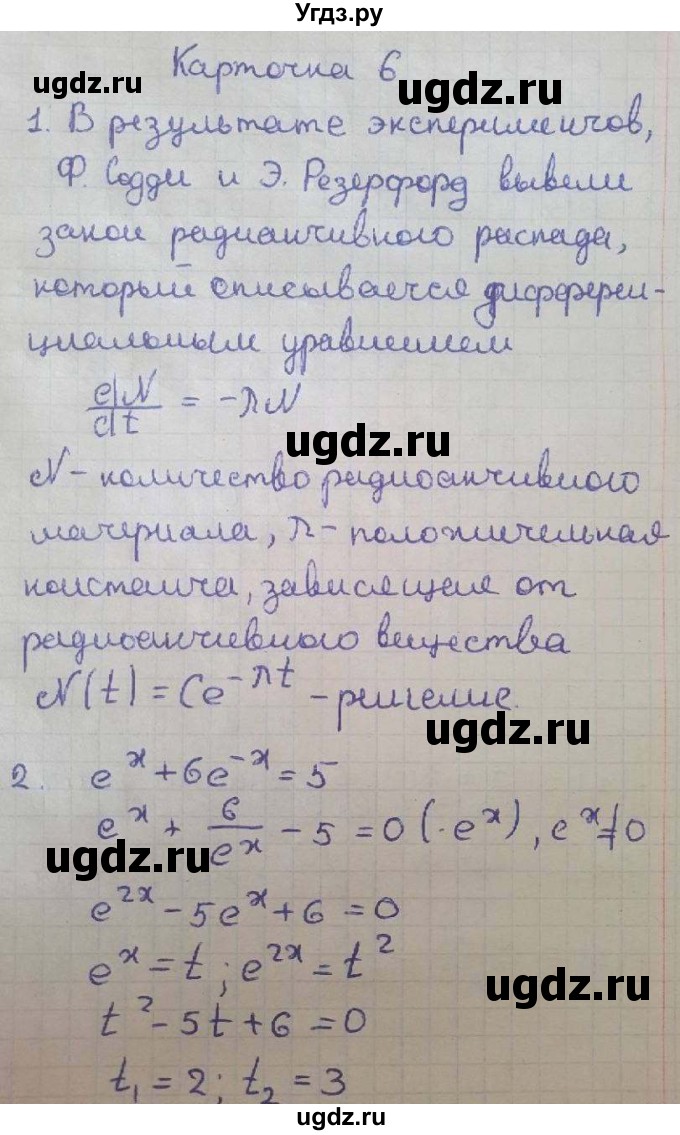 Угдз.ру
Карточка 6
ugdz.ru
ugdz.ru
1. В результате экспериментов,
Ф. Содди и Э. Резерфорд вывели
закон радиактивного распада,
который описывается дифферен-
циальным уравнением
dN/dt = -λN
ugdz.ru
N - количество радиоактивного
материала, λ - положительная
константа, зависящая от
радиоактивного вещества
N(t) = Ce^{-λt} - решение.
ugdz.ru
2. e^x + 6e^{-x} = 5
e^x + 6/e^x - 5 = 0 (·e^x), e^x ≠ 0
ugdz.ru
e^{2x} - 5e^x + 6 = 0
e^x = t; e^{2x} = t^2
ugdz.ru
t^2 - 5t + 6 = 0
t₁ = 2; t₂ = 3
ugdz.ru